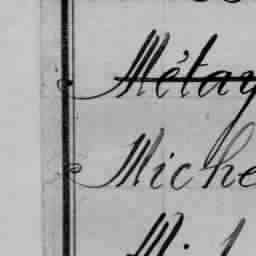 Métay
Miche